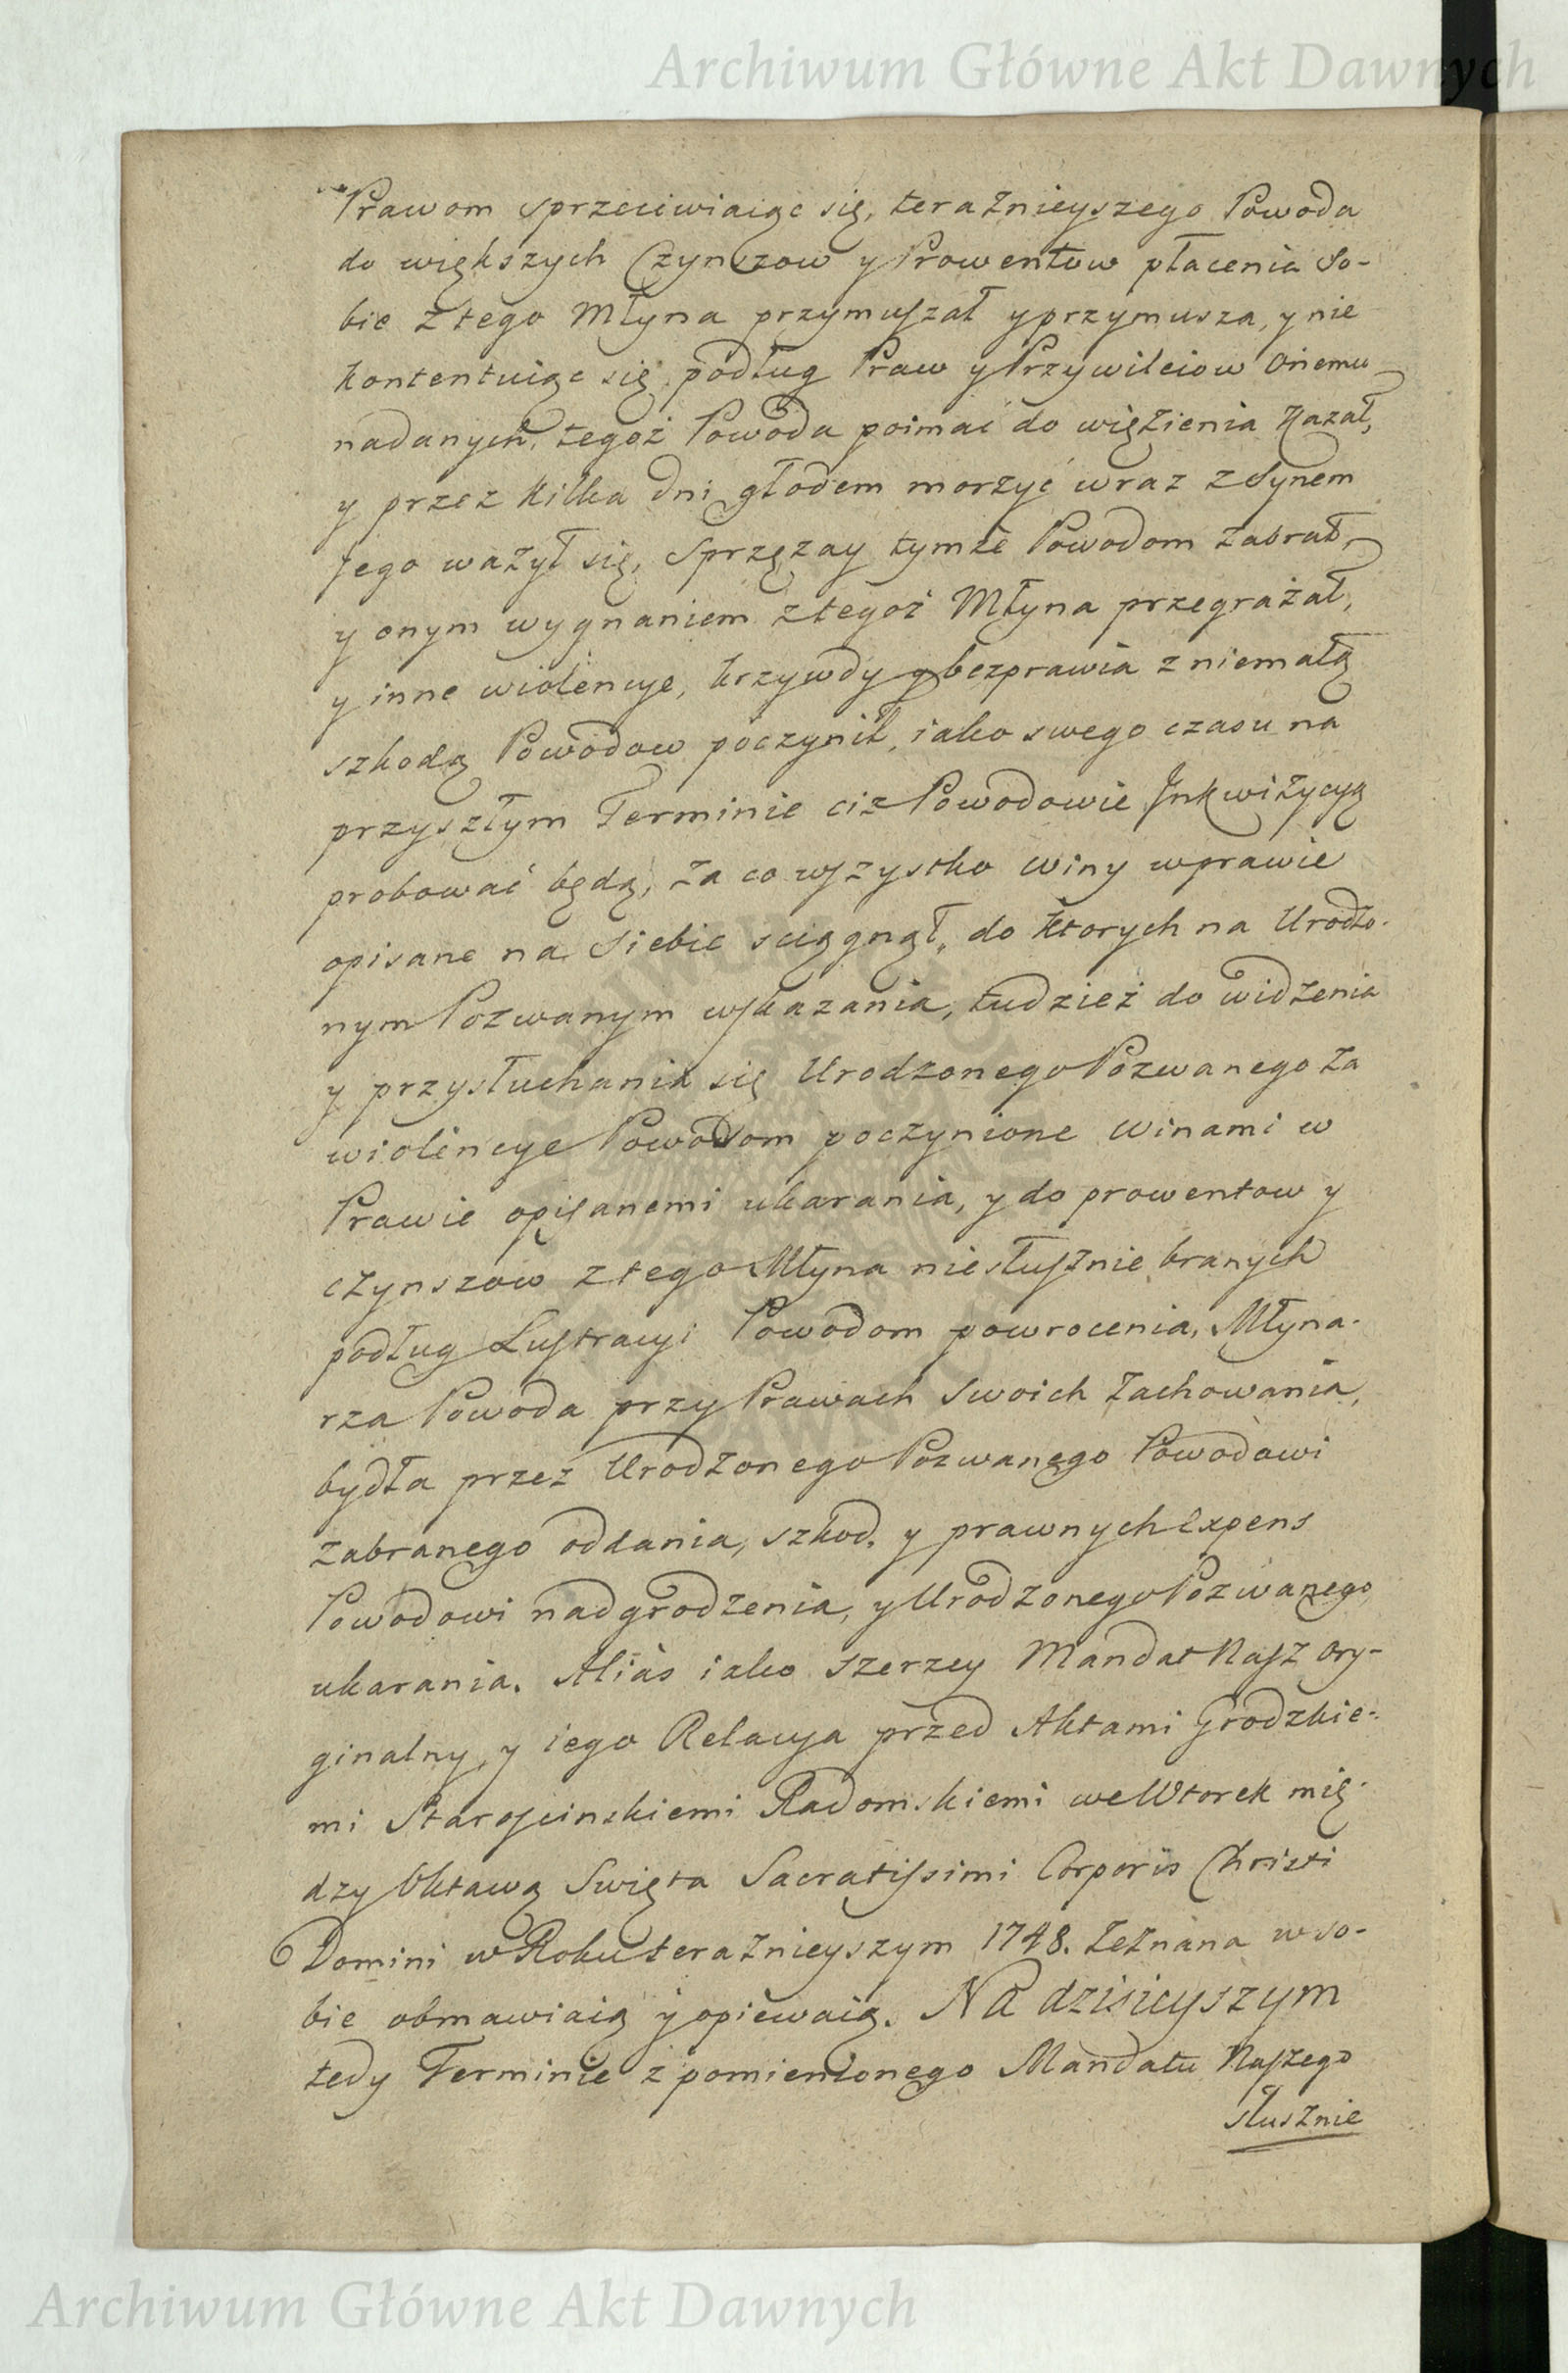 Archiwum Główne Akt Dawnych
Prawom sprzeciwiaiąc się, teraznieyszego Powoda
do większych Czynszow y Prowentow płacenia So-
bie z tego Młyna przymuszał y przymusza, y nie
kontentuiąc się podług Praw y Przywileiow onemu
nadanych, tegoż Powoda poimać do więzienia kazał,
y przez kilka dni głodem morzyć wraz z Synem
Jego ważył się, Sprzężay tymże Powodom zabrał,
y onym wygnaniem z tegoż Młyna przegrażał,
y inne wiolencye, krzywdy y bezprawia z niemałą
szkodą Powodow poczynił, iako swego czasu na
przyszłym Terminie ciż Powodowie Inkwizycyą
probować będą, za co wszystko winy w prawie
opisane na Siebie sciągnął, do ktorych na Urodzo-
nym Pozwanym wskazania, tudzież do widzenia
y przysłuchania się Urodzonego Pozwanego za
wiolencye Powodom poczynione winami w
Prawie opisanemi ukarania, y do prowentow y
czynszow z tego Młyna niesłusznie branych
podług Lustracyi Powodom powrocenia, Młyna-
rza Powoda przy Prawach Swoich zachowania,
bydła przez Urodzonego Pozwanego Powodowi
zabranego oddania, szkod, y prawnych Expens
Powodowi nadgrodzenia, y Urodzonego Pozwanego
ukarania. Aliàs iako szerzey Mandat Nasz ory-
ginalny, y iego Relacya przed Aktami Grodzkie-
mi Staroscinskiemi Radomskiemi we Wtorek mię-
dzy Oktawą Swięta Sacratissimi Corporis Christi
Domini w Roku teraznieyszym 1748. zeznana w so-
bie obmawiaią y opiewaią. Na dzisieyszym
tedy Terminie z pomienionego Mandatu Naszego
słusznie
Archiwum Główne Akt Dawnych